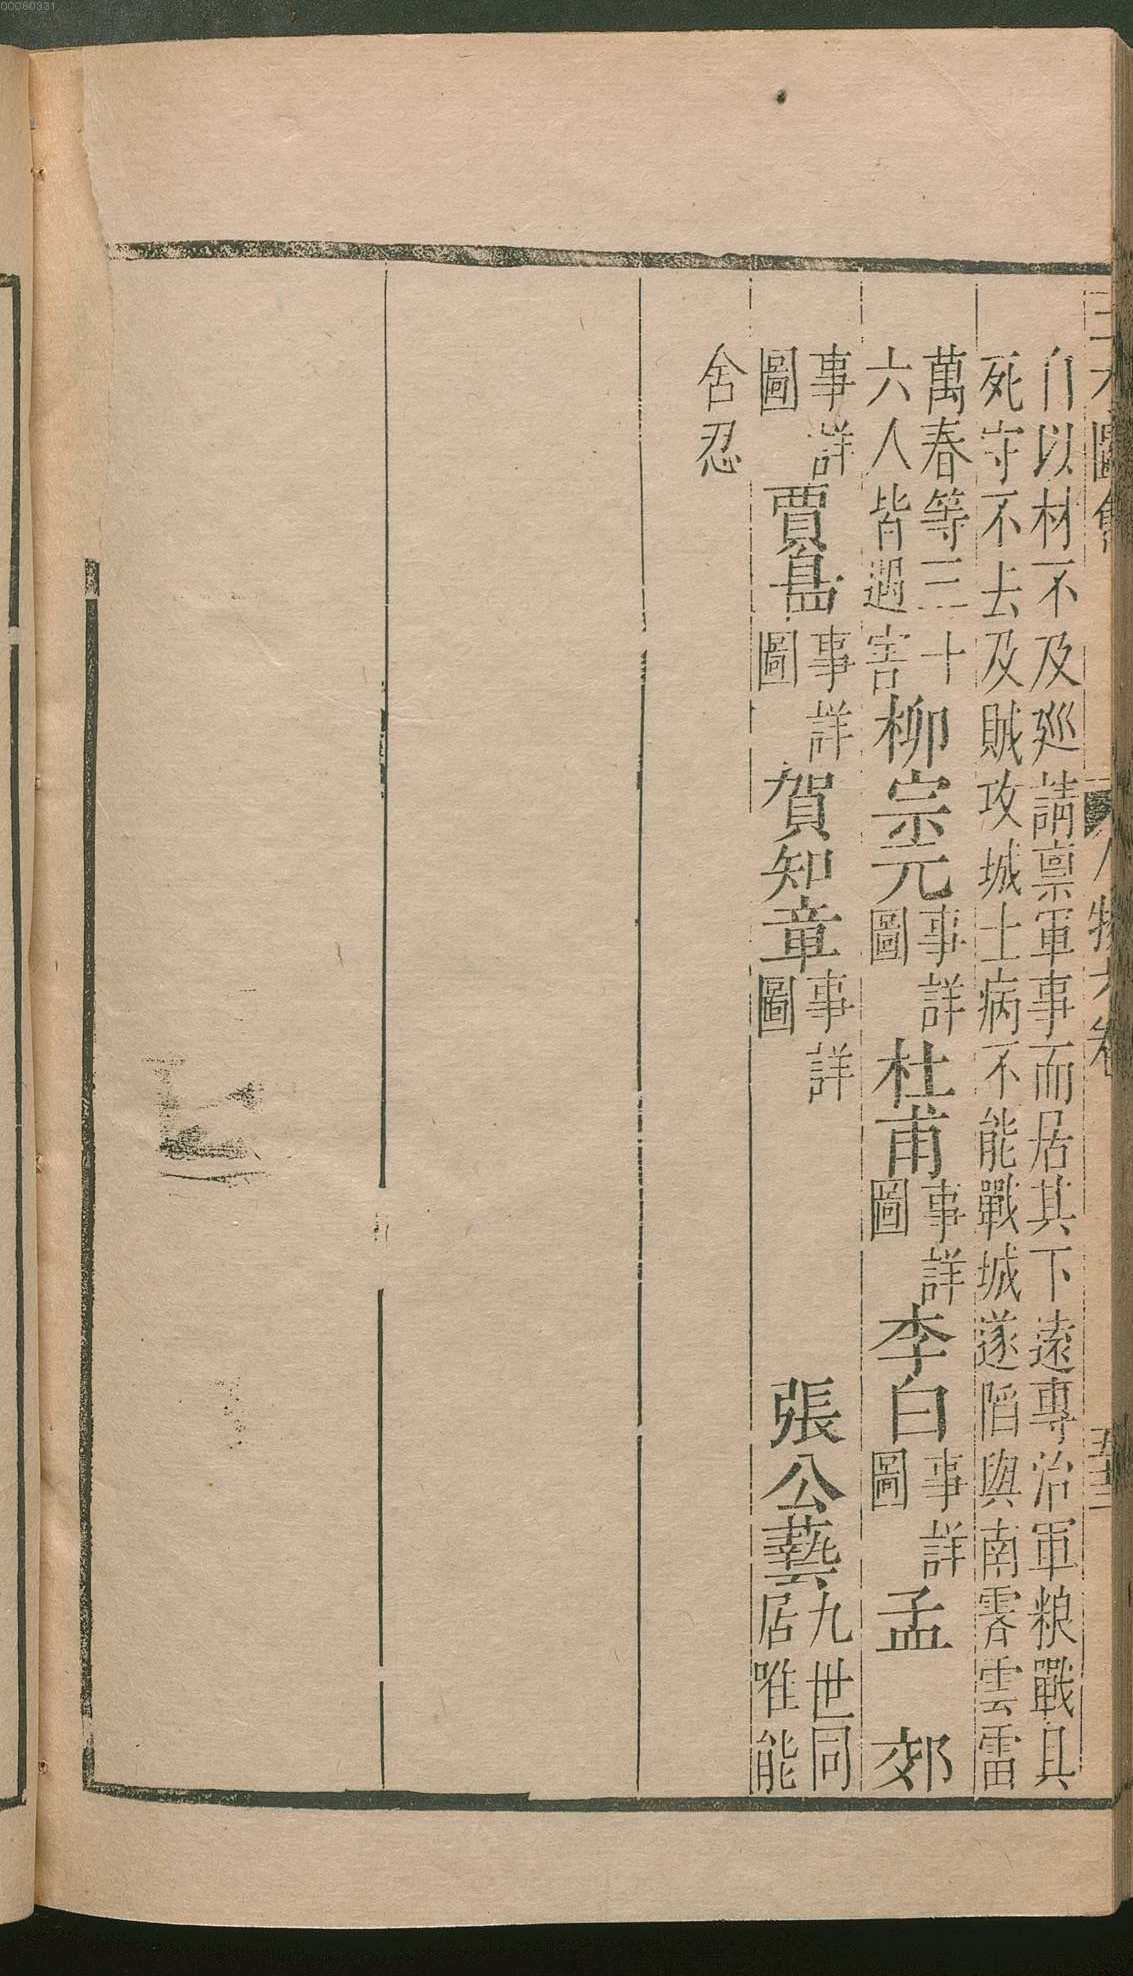 三才圖會 人物六卷 五十三
自以材不及廵請禀軍事而居其下遠專治軍粮戰具
死守不去及賊攻城士病不能戰城遂陷與南霽雲雷
萬春等三十
六人皆遇害
柳宗元
事詳
圖
杜甫
事詳
圖
李白
事詳
圖
孟郊
事詳
圖
賈島
事詳
圖
賀知章
事詳
圖
張公藝
九世同
居唯能
舍忍
00060331